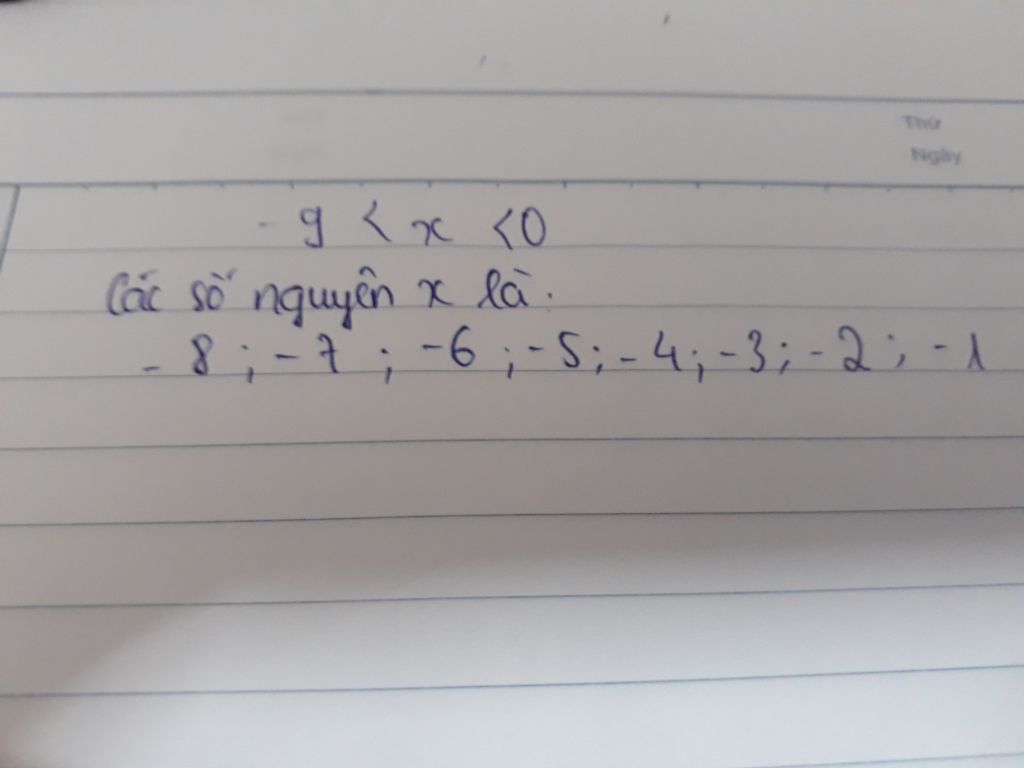 Thứ
Ngày
- 9 < x < 0
Các số nguyên x là.
- 8 ; - 7 ; - 6 ; - 5 ; - 4 ; - 3 ; - 2 ; - 1